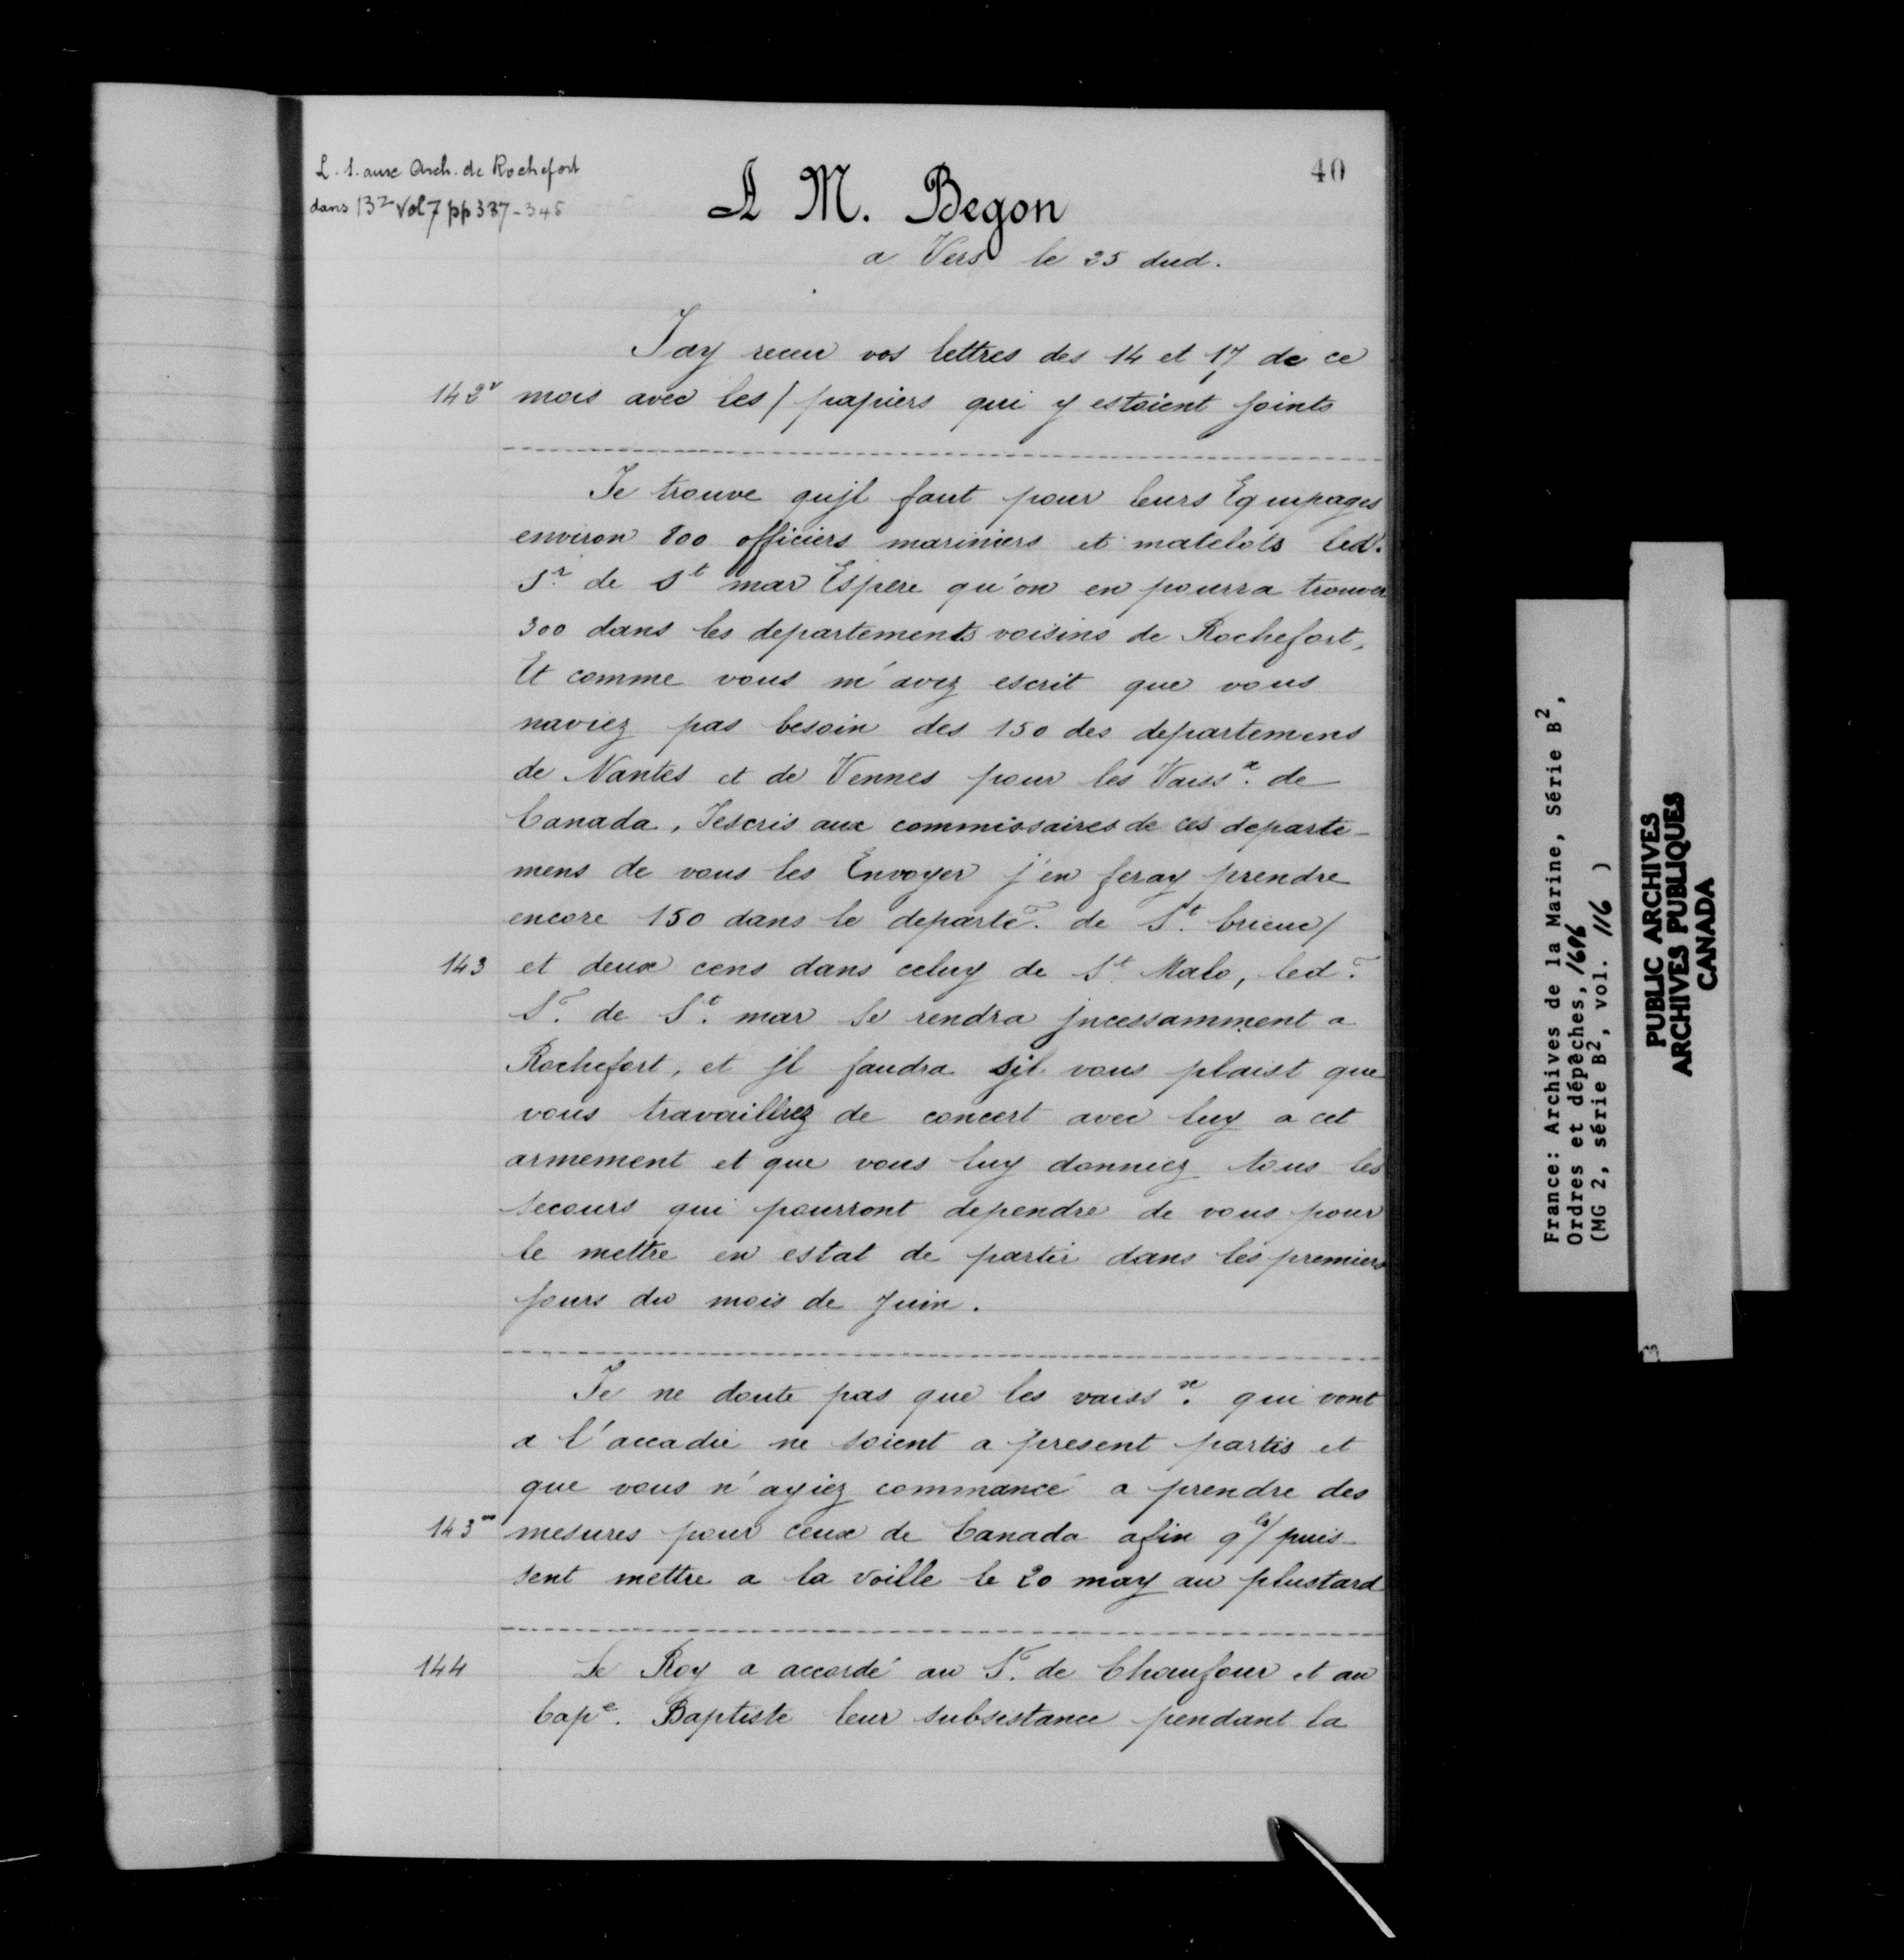 40
L. S. aux Arch. de Rochefort
dans B² Vol 7 pp 337-345
A M. Begon
a Vers le 25 dud.
Jay receu vos lettres des 14 et 17 de ce
142v mois avec les / papiers qui y estoient joints
Je trouve qujl faut pour leurs Equipages
environ 800 officiers mariniers et matelots led.
Sr. de St mar Espere qu'on en pourra trouver
300 dans les departements voisins de Rochefort,
Et comme vous m'avez escrit que vous
naviez pas besoin des 150 des departemens
de Nantes et de Vennes pour les Vaissx. de
Canada, Jescris aux commissaires de ces departe-
mens de vous les Envoyer j'en feray prendre
encore 150 dans le departe. de St. brieuc /
143 et deux cens dans celuy de St Malo, led.
Sr. de St. mar se rendra jncessamment a
Rochefort, et jl faudra sjl vous plaist que
vous travaillez de concert avec luy a cet
armement et que vous luy donniez tous les
secours qui pourront dependre de vous pour
le mettre en estat de partir dans les premiers
jours du mois de Juin.
Je ne doute pas que les vaissx. qui vont
a l'accadie ne soient a present partis et
que vous n'ayiez commancé a prendre des
143vo mesures pour ceux de Canada afin qls / puis-
sent mettre a la voille le 20 may au plustard
144 Le Roy a accordé au Sr. de Choufour et au
Cape. Baptiste leur subsistance pendant la
France: Archives de la Marine, Série B²,
Ordres et dépêches, 1696
(MG 2, série B², vol. 116 )
PUBLIC ARCHIVES
ARCHIVES PUBLIQUES
CANADA